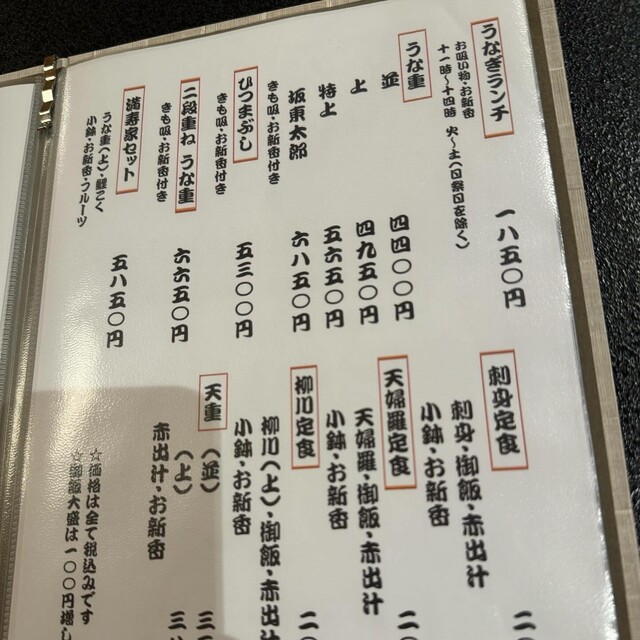 うなぎランチ 一八五〇円
お吸い物・お新香
十一時〜十四時 火〜土(日祭日を除く)
うな重
並 四四〇〇円
上 四九五〇円
特上 五六五〇円
坂東太郎 六八五〇円
きも吸・お新香付き
ひつまぶし 五三〇〇円
きも吸・お新香付き
二段重ね うな重 六六五〇円
きも吸・お新香付き
満寿家セット 五八五〇円
うな重(上)鯉こく
小鉢・お新香・フルーツ
刺身定食
刺身・御飯・赤出汁
小鉢・お新香
天婦羅定食
天婦羅・御飯・赤出汁
小鉢・お新香
柳川定食
柳川(上)・御飯・赤出汁
小鉢・お新香
天重
(並)
(上)
赤出汁・お新香
☆価格は全て税込みです
☆御飯大盛は一〇〇円増し